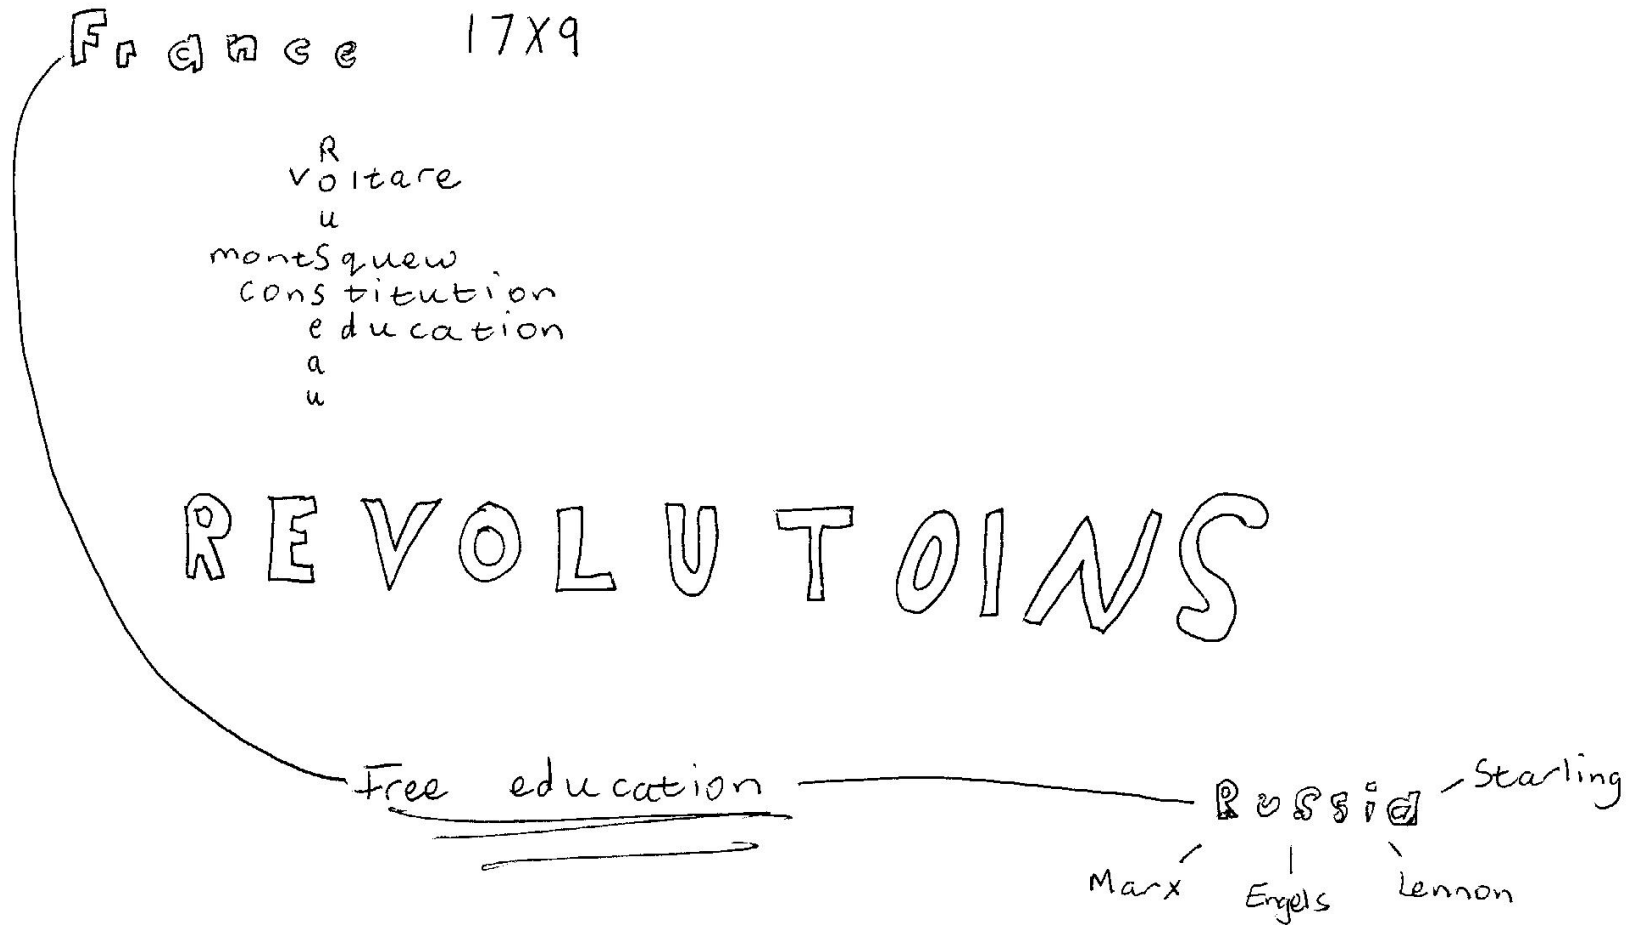 France 17X9
R
voltare
u
montSquew
constitution
education
a
u
REVOLUTOINS
Free education
Russia
Starling
Marx
Engels
Lennon